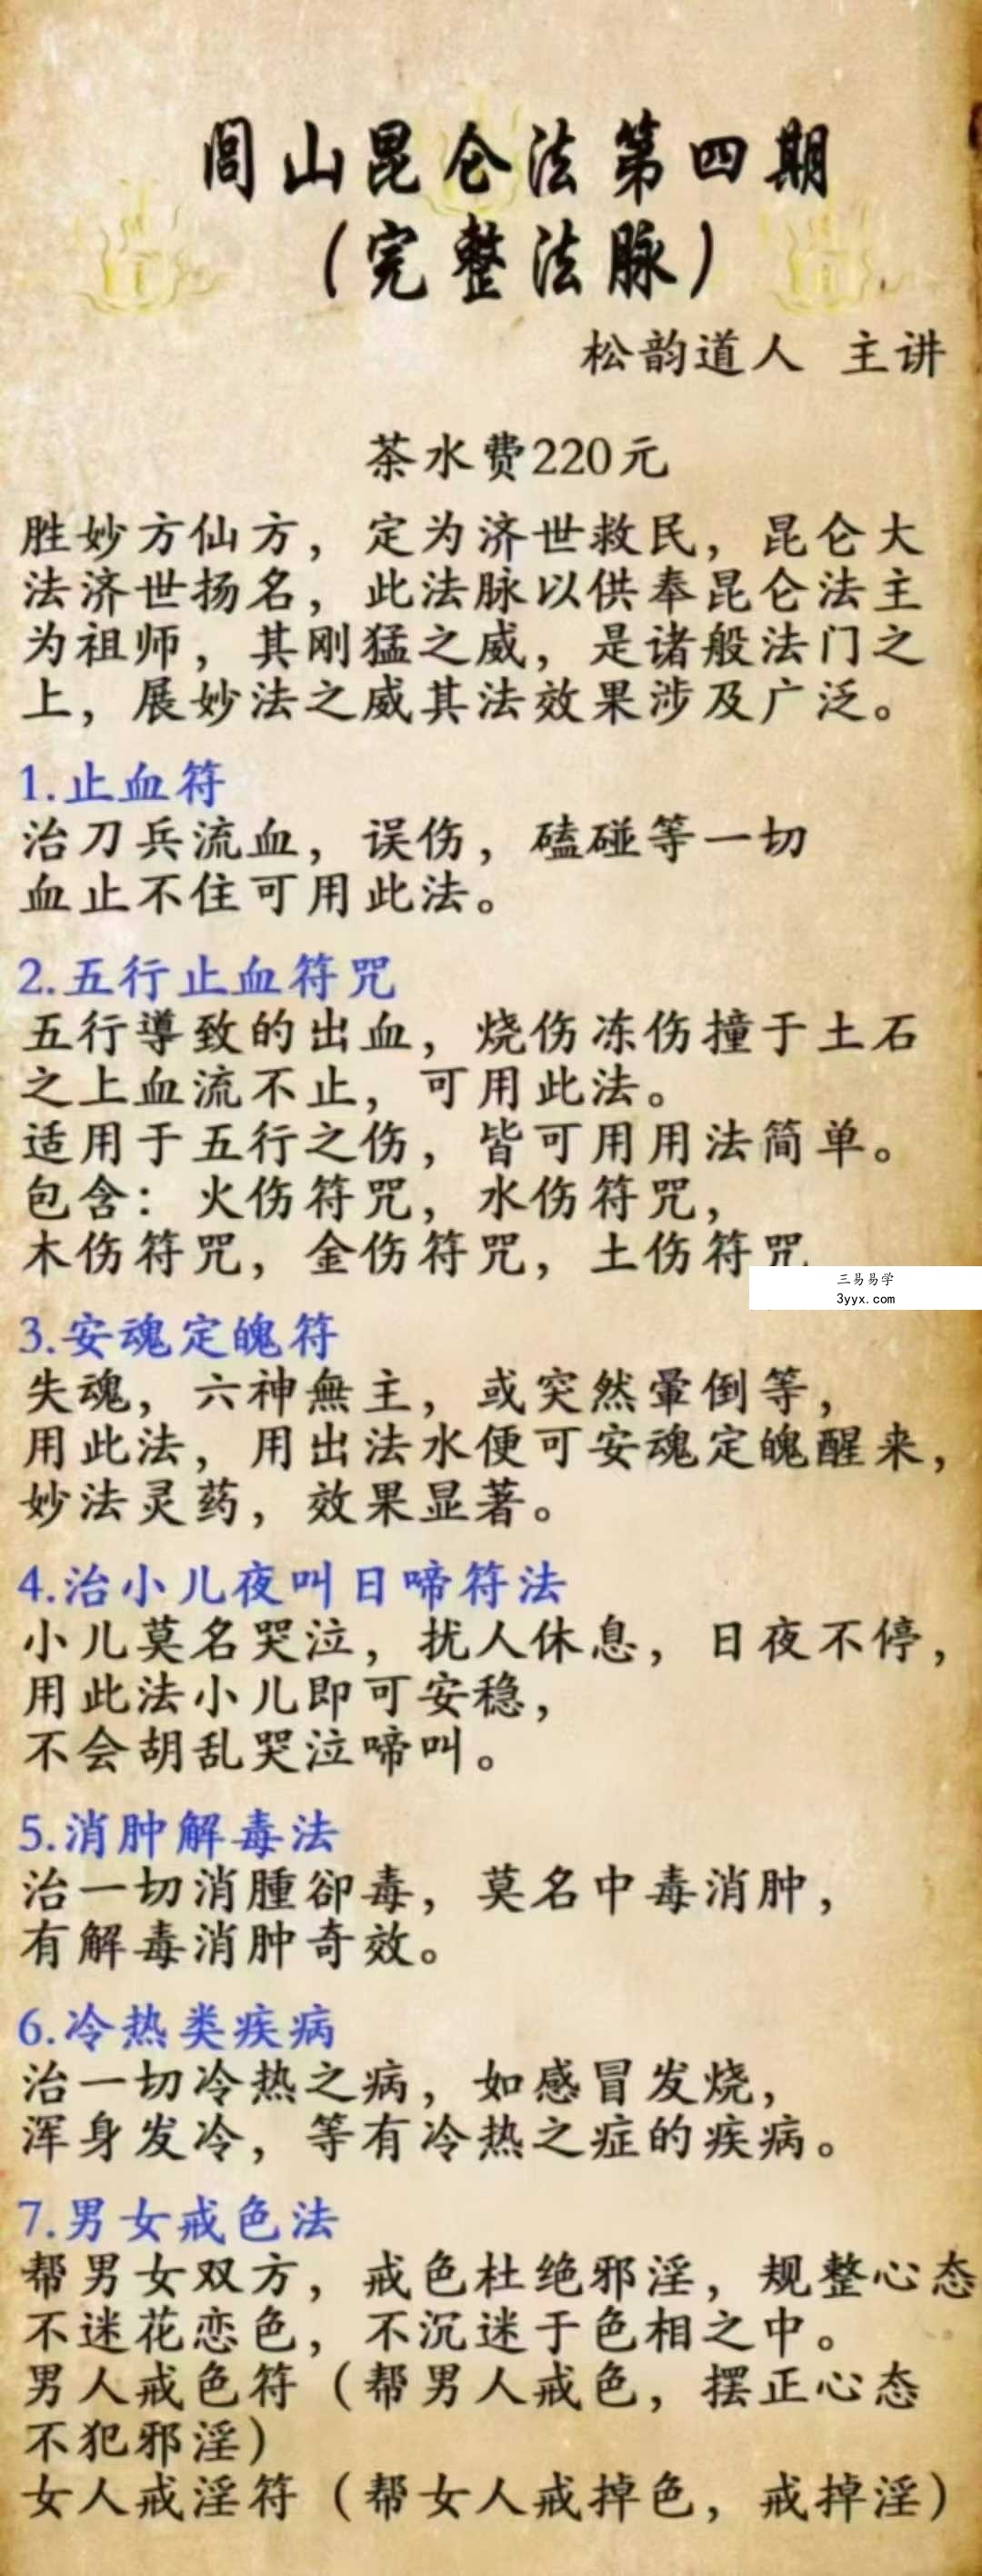 闾山昆仑法第四期
（完整法脉）
松韵道人 主讲
茶水费220元
胜妙方仙方，定为济世救民，昆仑大
法济世扬名，此法脉以供奉昆仑法主
为祖师，其刚猛之威，是诸般法门之
上，展妙法之威其法效果涉及广泛。
1.止血符
治刀兵流血，误伤，磕碰等一切
血止不住可用此法。
2.五行止血符咒
五行導致的出血，烧伤冻伤撞于土石
之上血流不止，可用此法。
适用于五行之伤，皆可用用法简单。
包含：火伤符咒，水伤符咒，
木伤符咒，金伤符咒，土伤符咒
三易易学
3yyx.com
3.安魂定魄符
失魂，六神無主，或突然暈倒等，
用此法，用出法水便可安魂定魄醒来，
妙法灵药，效果显著。
4.治小儿夜叫日啼符法
小儿莫名哭泣，扰人休息，日夜不停，
用此法小儿即可安稳，
不会胡乱哭泣啼叫。
5.消肿解毒法
治一切消腫卻毒，莫名中毒消肿，
有解毒消肿奇效。
6.冷热类疾病
治一切冷热之病，如感冒发烧，
浑身发冷，等有冷热之症的疾病。
7.男女戒色法
帮男女双方，戒色杜绝邪淫，规整心态
不迷花恋色，不沉迷于色相之中。
男人戒色符（帮男人戒色，摆正心态
不犯邪淫）
女人戒淫符（帮女人戒掉色，戒掉淫）